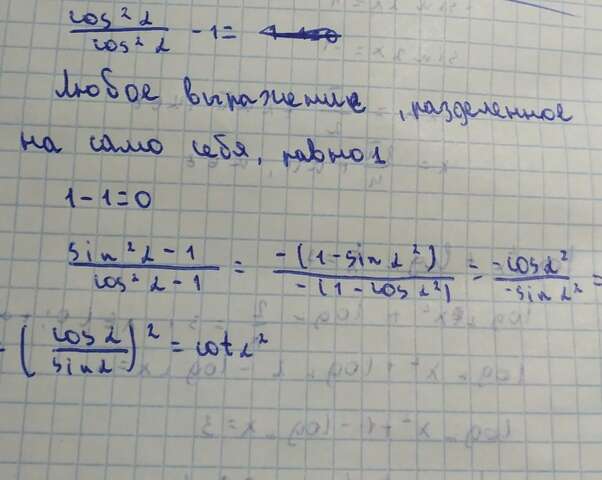 cos²α / cos²α - 1 =
Любое выражение, разделенное
на само себя, равно 1
1-1=0
sin²α - 1 / cos²α - 1 = -(1-sinα²) / -(1-cosα²) = -cosα² / -sinα² =
(cosα / sinα)² = cotα²